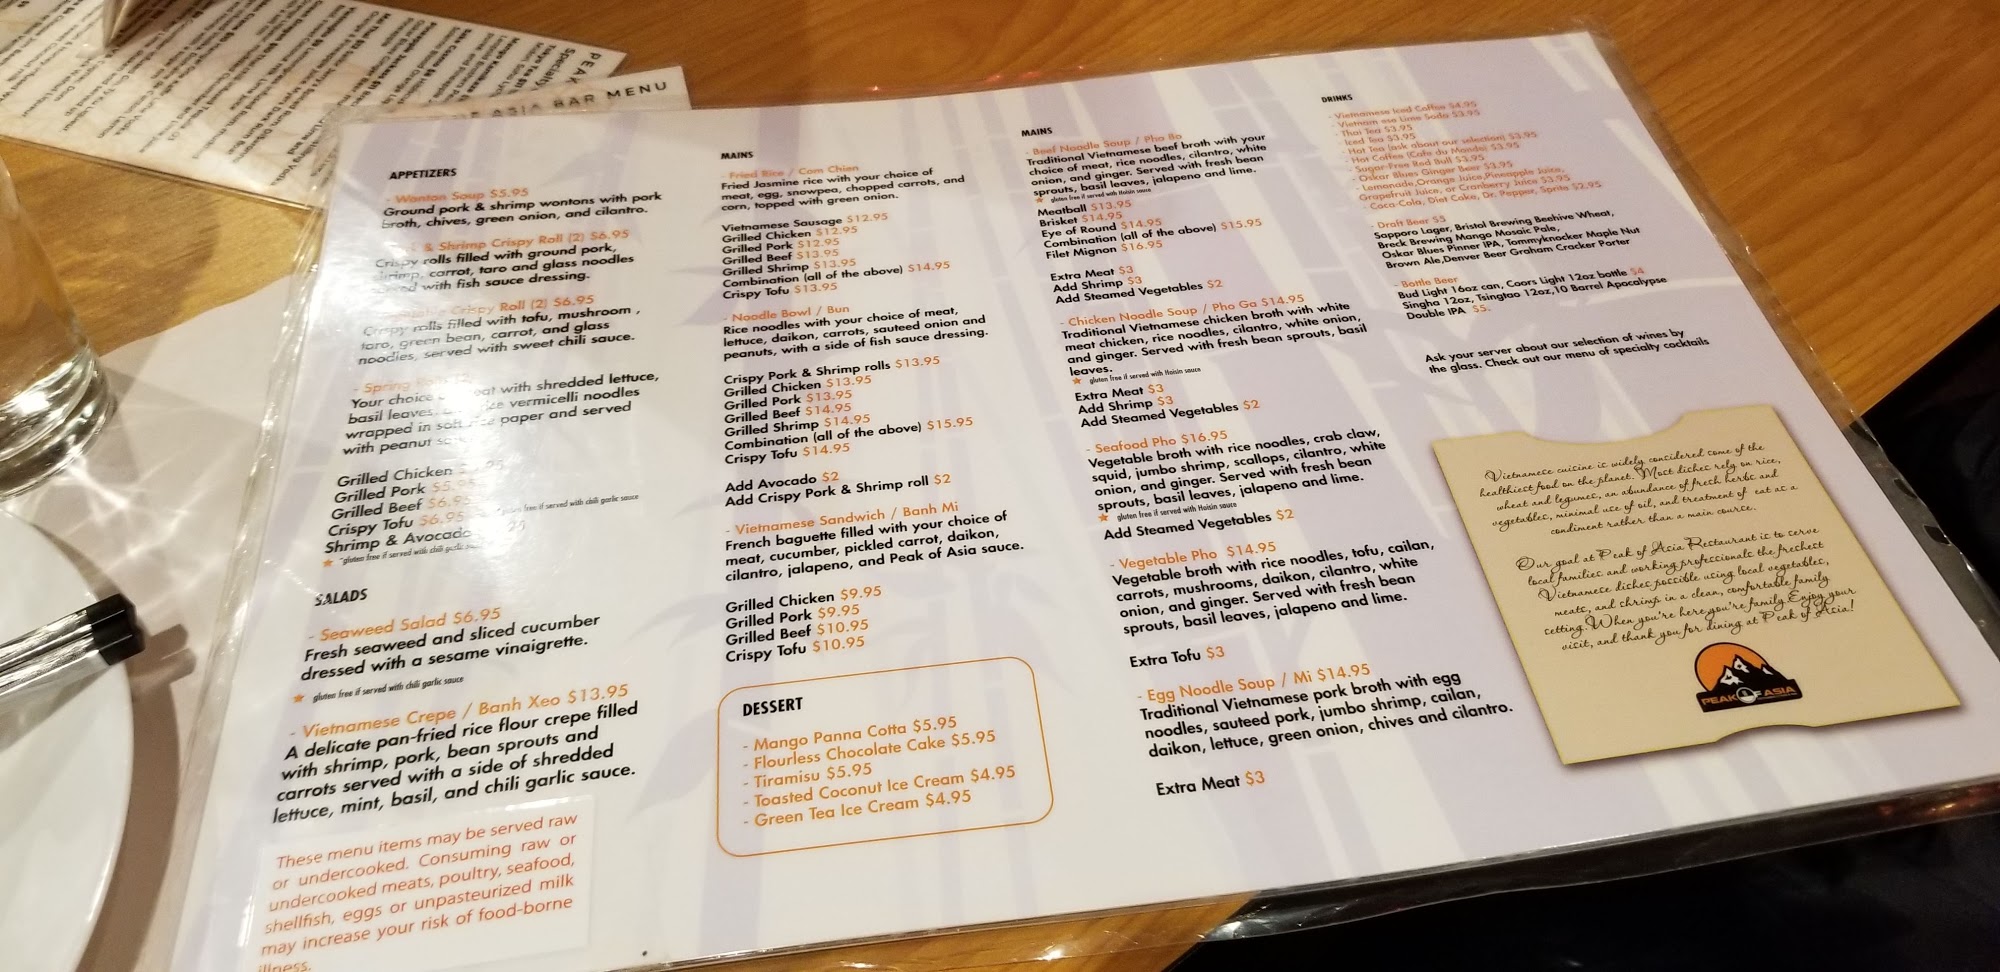 ASIA BAR MENU
APPETIZERS
- Wonton Soup $5.95
Ground pork & shrimp wontons with pork
broth, chives, green onion, and cilantro.
& Shrimp Crispy Roll (2) $6.95
Crispy rolls filled with ground pork,
shrimp, carrot, taro and glass noodles
served with fish sauce dressing.
Crispy Roll (2) $6.95
Crispy rolls filled with tofu, mushroom ,
taro, green bean, carrot, and glass
noodles, served with sweet chili sauce.
- Spring
Your choice with shredded lettuce,
basil leaves, vermicelli noodles
wrapped in soft paper and served
with peanut
Grilled Chicken
Grilled Pork
Grilled Beef $6.95
Crispy Tofu $6.95
Shrimp & Avocado
*gluten free if served with chili garlic
SALADS
- Seaweed Salad $6.95
Fresh seaweed and sliced cucumber
dressed with a sesame vinaigrette.
gluten free if served with chili garlic sauce
- Vietnamese Crepe / Banh Xeo $13.95
A delicate pan-fried rice flour crepe filled
with shrimp, pork, bean sprouts and
carrots served with a side of shredded
lettuce, mint, basil, and chili garlic sauce.
These menu items may be served raw
or undercooked. Consuming raw or
undercooked meats, poultry, seafood,
shellfish, eggs or unpasteurized milk
may increase your risk of food-borne
illness.
MAINS
- Fried Rice / Com Chien
Fried Jasmine rice with your choice of
meat, egg, snowpea, chopped carrots, and
corn, topped with green onion.
Vietnamese Sausage $12.95
Grilled Chicken $12.95
Grilled Pork $12.95
Grilled Beef $13.95
Grilled Shrimp $13.95
Combination (all of the above) $14.95
Crispy Tofu $13.95
- Noodle Bowl / Bun
Rice noodles with your choice of meat,
lettuce, daikon, carrots, sauteed onion and
peanuts, with a side of fish sauce dressing.
Crispy Pork & Shrimp rolls $13.95
Grilled Chicken $13.95
Grilled Pork $13.95
Grilled Beef $14.95
Grilled Shrimp $14.95
Combination (all of the above) $15.95
Crispy Tofu $14.95
Add Avocado $2
Add Crispy Pork & Shrimp roll $2
- Vietnamese Sandwich / Banh Mi
French baguette filled with your choice of
meat, cucumber, pickled carrot, daikon,
cilantro, jalapeno, and Peak of Asia sauce.
Grilled Chicken $9.95
Grilled Pork $9.95
Grilled Beef $10.95
Crispy Tofu $10.95
DESSERT
- Mango Panna Cotta $5.95
- Flourless Chocolate Cake $5.95
- Tiramisu $5.95
- Toasted Coconut Ice Cream $4.95
- Green Tea Ice Cream $4.95
MAINS
- Beef Noodle Soup / Pha Bo
Traditional Vietnamese beef broth with your
choice of meat, rice noodles, cilantro, white
onion, and ginger. Served with fresh bean
sprouts, basil leaves, jalapeno and lime.
gluten free if served with Hoisin sauce
Meatball $13.95
Brisket $14.95
Eye of Round $14.95
Combination (all of the above) $15.95
Filet Mignon $16.95
Extra Meat $3
Add Shrimp $3
Add Steamed Vegetables $2
- Chicken Noodle Soup / Pho Ga $14.95
Traditional Vietnamese chicken broth with white
meat chicken, rice noodles, cilantro, white onion,
and ginger. Served with fresh bean sprouts, basil
leaves.
gluten free if served with Hoisin sauce
Extra Meat $3
Add Shrimp $3
Add Steamed Vegetables $2
- Seafood Pho $16.95
Vegetable broth with rice noodles, crab claw,
squid, jumbo shrimp, scallops, cilantro, white
onion, and ginger. Served with fresh bean
sprouts, basil leaves, jalapeno and lime.
gluten free if served with Hoisin sauce
Add Steamed Vegetables $2
- Vegetable Pho $14.95
Vegetable broth with rice noodles, tofu, cailan,
carrots, mushrooms, daikon, cilantro, white
onion, and ginger. Served with fresh bean
sprouts, basil leaves, jalapeno and lime.
Extra Tofu $3
- Egg Noodle Soup / Mi $14.95
Traditional Vietnamese pork broth with egg
noodles, sauteed pork, jumbo shrimp, cailan,
daikon, lettuce, green onion, chives and cilantro.
Extra Meat $3
DRINKS
- Vietnamese Iced Coffee $4.95
- Vietnam ese Lime Soda $3.95
- Thai Tea $3.95
- Iced Tea $3.95
- Hot Tea (ask about our selection) $3.95
- Hot Coffee (Cafe du Monde) $3.95
- Sugar-Free Red Bull $3.95
- Oskar Blues Ginger Beer $3.95
- Lemonade,Orange Juice,Pineapple Juice,
Grapefruit Juice, or Cranberry Juice $3.95
- Coca-Cola, Diet Coke, Dr. Pepper, Sprite $2.95
- Draft Beer $5
Sapporo Lager, Bristol Brewing Beehive Wheat,
Breck Brewing Mango Mosaic Pale,
Oskar Blues Pinner IPA, Tommyknocker Maple Nut
Brown Ale,Denver Beer Graham Cracker Porter
- Bottle Beer
Bud Light 16oz can, Coors Light 12oz bottle $4
Singha 12oz, Tsingtao 12oz,10 Barrel Apocalypse
Double IPA $5.
Ask your server about our selection of wines by
the glass. Check out our menu of specialty cocktails
Vietnamese cuisine is widely considered some of the
healthiest food on the planet. Most dishes rely on rice,
wheat and legumes, an abundance of fresh herbs and
vegetables, minimal use of oil, and treatment of eat as a
condiment rather than a main cource.
Our goal at Peak of Asia Restaurant is to serve
local families and working professionals the freshest
Vietnamese dishes possible using local vegetables,
meats, and shrimp in a clean, comfortable family
setting. When you're here,you're family.Enjoy your
visit, and thank you for dining at Peak of Asia!
PEAK OF ASIA